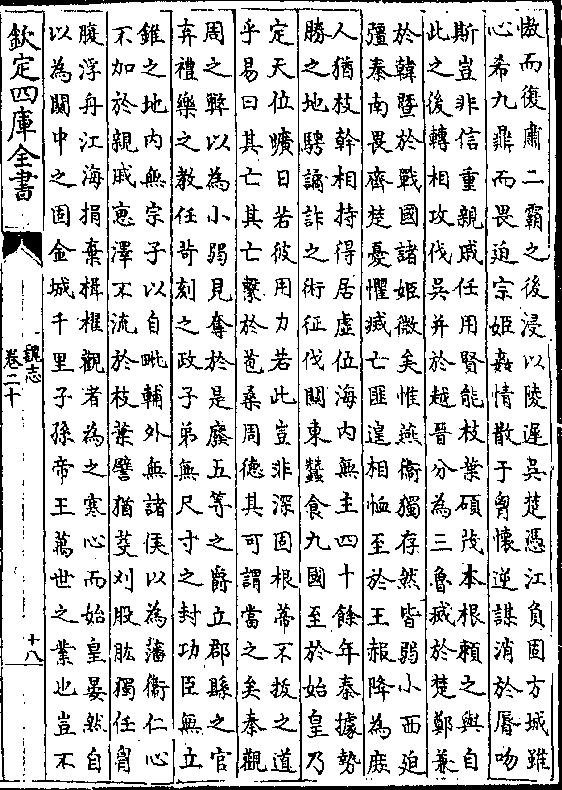 傲而復肅二霸之後浸以陵遲吳楚憑江負固方城雖
心希九鼎而畏迫宗姬姦情散于胷懷逆謀消於脣吻
斯豈非信重親戚任用賢能枝葉碩茂本根賴之與自
此之後轉相攻伐吳并於越晉分為三魯滅於楚鄭兼
於韓暨於戰國諸姬微矣惟燕衞獨存然皆弱小西迫
彊秦南畏齊楚憂懼滅亡匪遑相恤至於王赧降為庶
人猶枝幹相持得居虛位海内無主四十餘年秦據勢
勝之地騁譎詐之術征伐闗東蠶食九國至於始皇乃
定天位曠日若彼用力若此豈非深固根蔕不拔之道
乎易曰其亡其亡繫於苞桑周德其可謂當之矣秦觀
周之弊以為小弱見奪於是廢五等之爵立郡縣之官
弃禮樂之教任苛刻之政子弟無尺寸之封功臣無立
錐之地内無宗子以自毗輔外無諸侯以為藩衞仁心
不加於親戚惠澤不流於枝葉譬猶芟刈股肱獨任胷
腹浮舟江海捐棄楫櫂觀者為之寒心而始皇晏然自
以為闗中之固金城千里子孫帝王萬世之業也豈不
欽定四庫全書
魏志
卷二十
十八